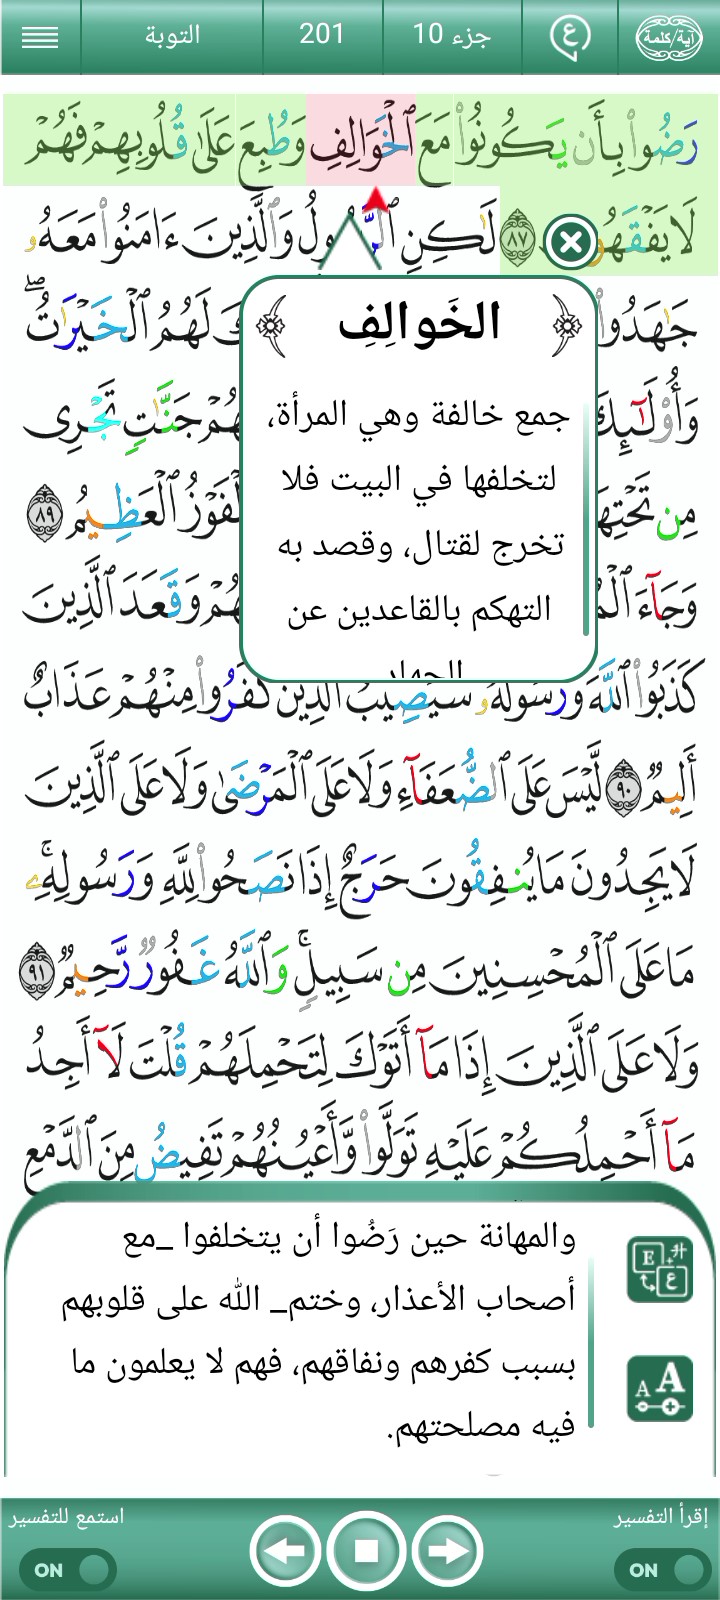 آية/كلمة
ع
جزء 10
201
التوبة
رَضُوا۟ بِأَن يَكُونُوا۟ مَعَ ٱلْخَوَالِفِ وَطُبِعَ عَلَىٰ قُلُوبِهِمْ فَهُمْ
لَا يَفْقَهُو ٨٧ لَٰكِنِ ٱلرَّ ولُ وَٱلَّذِينَ ءَامَنُوا۟ مَعَهُۥ
جَٰهَدُوا۟ كَ لَهُمُ ٱلْخَيْرَٰتُ ۖ
وَأُو۟لَٰٓئِكَ هُمْ جَنَّٰتٍ تَجْرِى
مِن تَحْتِهَ لْفَوْزُ ٱلْعَظِيمُ ٨٩
وَجَآءَ ٱلْمُ هُمْ وَقَعَدَ ٱلَّذِينَ
كَذَبُوا۟ ٱللَّهَ وَرَسُولَهُۥ سَيُصِيبُ ٱلَّذِينَ كَفَرُوا۟ مِنْهُمْ عَذَابٌ
أَلِيمٌ ٩٠ لَّيْسَ عَلَى ٱلضُّعَفَآءِ وَلَا عَلَى ٱلْمَرْضَىٰ وَلَا عَلَى ٱلَّذِينَ
لَا يَجِدُونَ مَا يُنفِقُونَ حَرَجٌ إِذَا نَصَحُوا۟ لِلَّهِ وَرَسُولِهِۦ ۚ
مَا عَلَى ٱلْمُحْسِنِينَ مِن سَبِيلٍ ۚ وَٱللَّهُ غَفُورٌ رَّحِيمٌ ٩١
وَلَا عَلَى ٱلَّذِينَ إِذَا مَآ أَتَوْكَ لِتَحْمِلَهُمْ قُلْتَ لَآ أَجِدُ
مَآ أَحْمِلُكُمْ عَلَيْهِ تَوَلَّوا۟ وَّأَعْيُنُهُمْ تَفِيضُ مِنَ ٱلدَّمْعِ
الخَوالِفِ
جمع خالفة وهي المرأة،
لتخلفها في البيت فلا
تخرج لقتال، وقصد به
التهكم بالقاعدين عن
والمهانة حين رَضُوا أن يتخلفوا _مع
أصحاب الأعذار، وختم_ الله على قلوبهم
بسبب كفرهم ونفاقهم، فهم لا يعلمون ما
فيه مصلحتهم.
E
ع
A A
إقرأ التفسير
ON
استمع للتفسير
ON